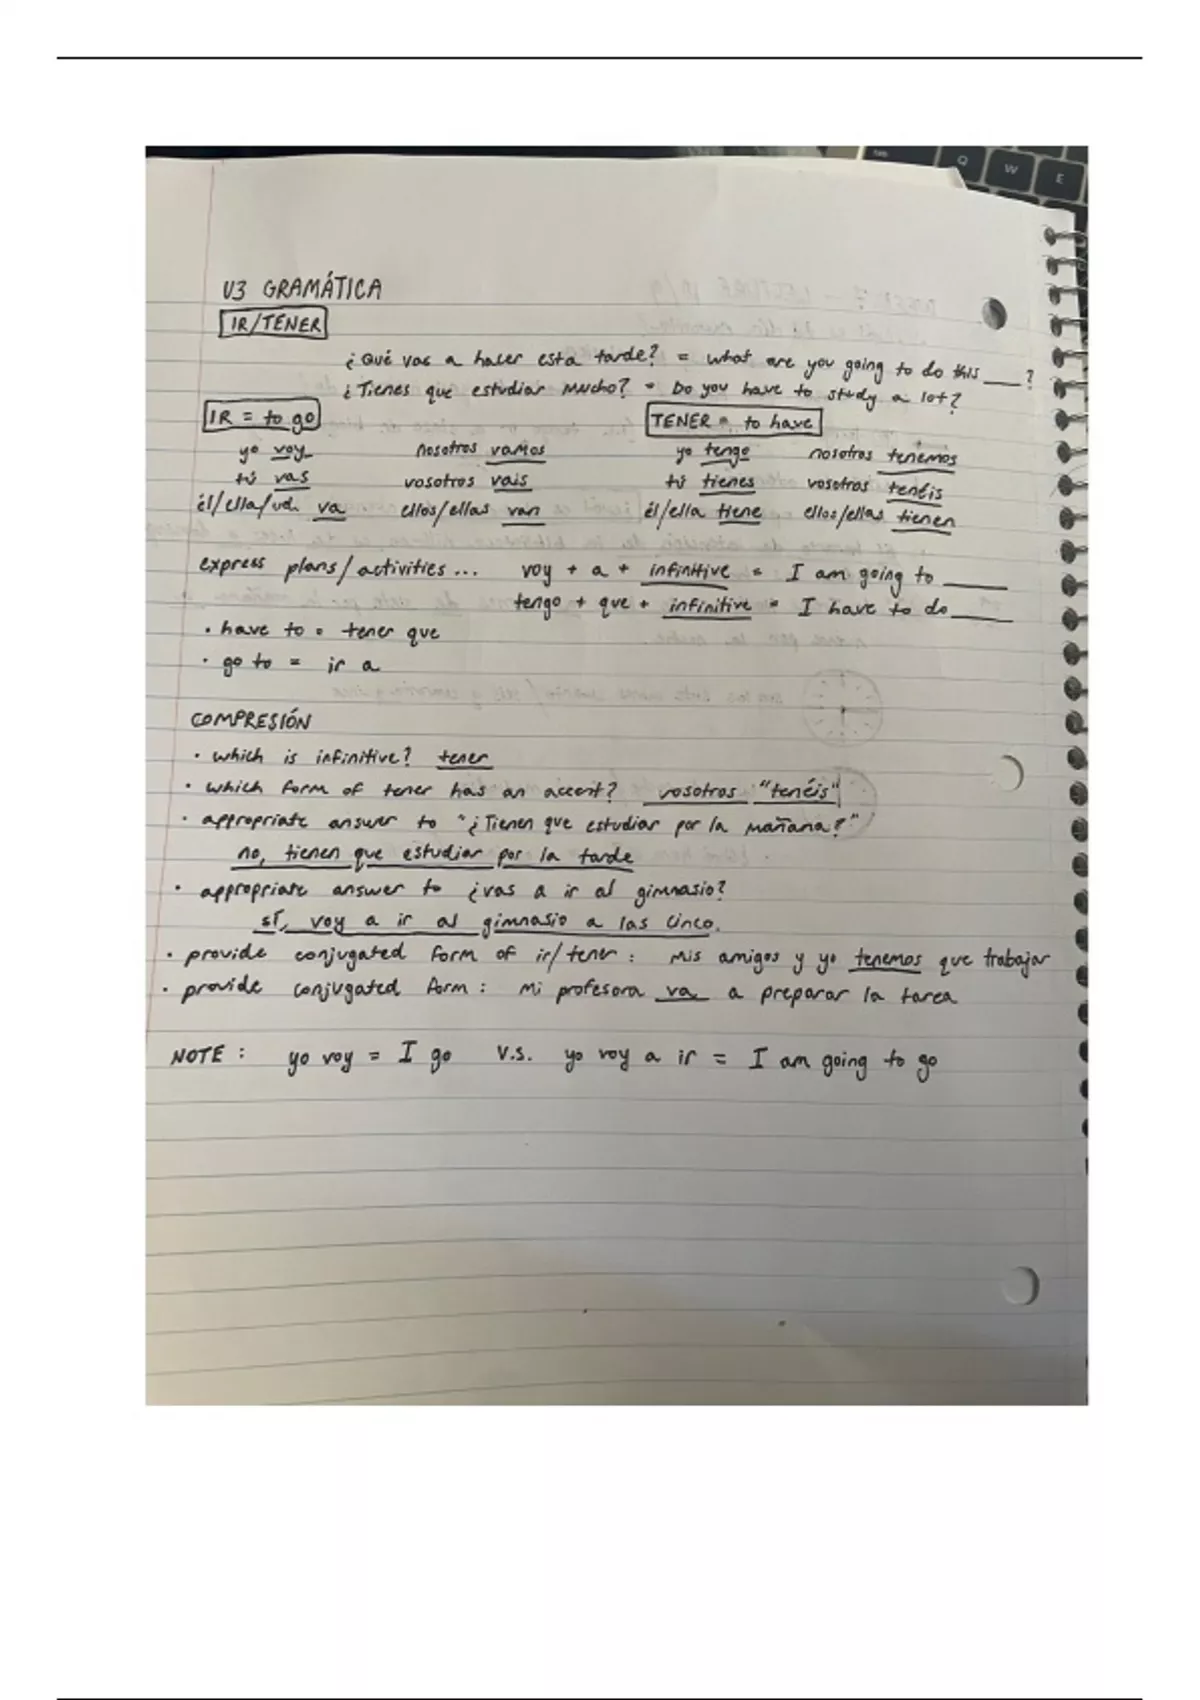 U3 GRAMÁTICA
IR/TENER
¿Qué vas a hacer esta tarde? = what are you going to do this ___?
¿Tienes que estudiar mucho? = Do you have to study a lot?
IR = to go TENER = to have
yo voy nosotros vamos yo tengo nosotros tenemos
tú vas vosotros vais tú tienes vosotros tenéis
él/ella/ud. va ellos/ellas van él/ella tiene ellos/ellas tienen
express plans/activities... voy + a + infinitive = I am going to ___
tengo + que + infinitive = I have to do ___
• have to = tener que
• go to = ir a
COMPRESIÓN
• which is infinitive? tener
• which form of tener has an accent? vosotros "tenéis"
• appropriate answer to "¿Tienen que estudiar por la mañana?"
no, tienen que estudiar por la tarde
• appropriate answer to ¿vas a ir al gimnasio?
sí, voy a ir al gimnasio a las cinco.
• provide conjugated form of ir/tener: Mis amigos y yo tenemos que trabajar
• provide conjugated form: Mi profesora va a preparar la tarea
NOTE: yo voy = I go V.S. yo voy a ir = I am going to go
Q W E